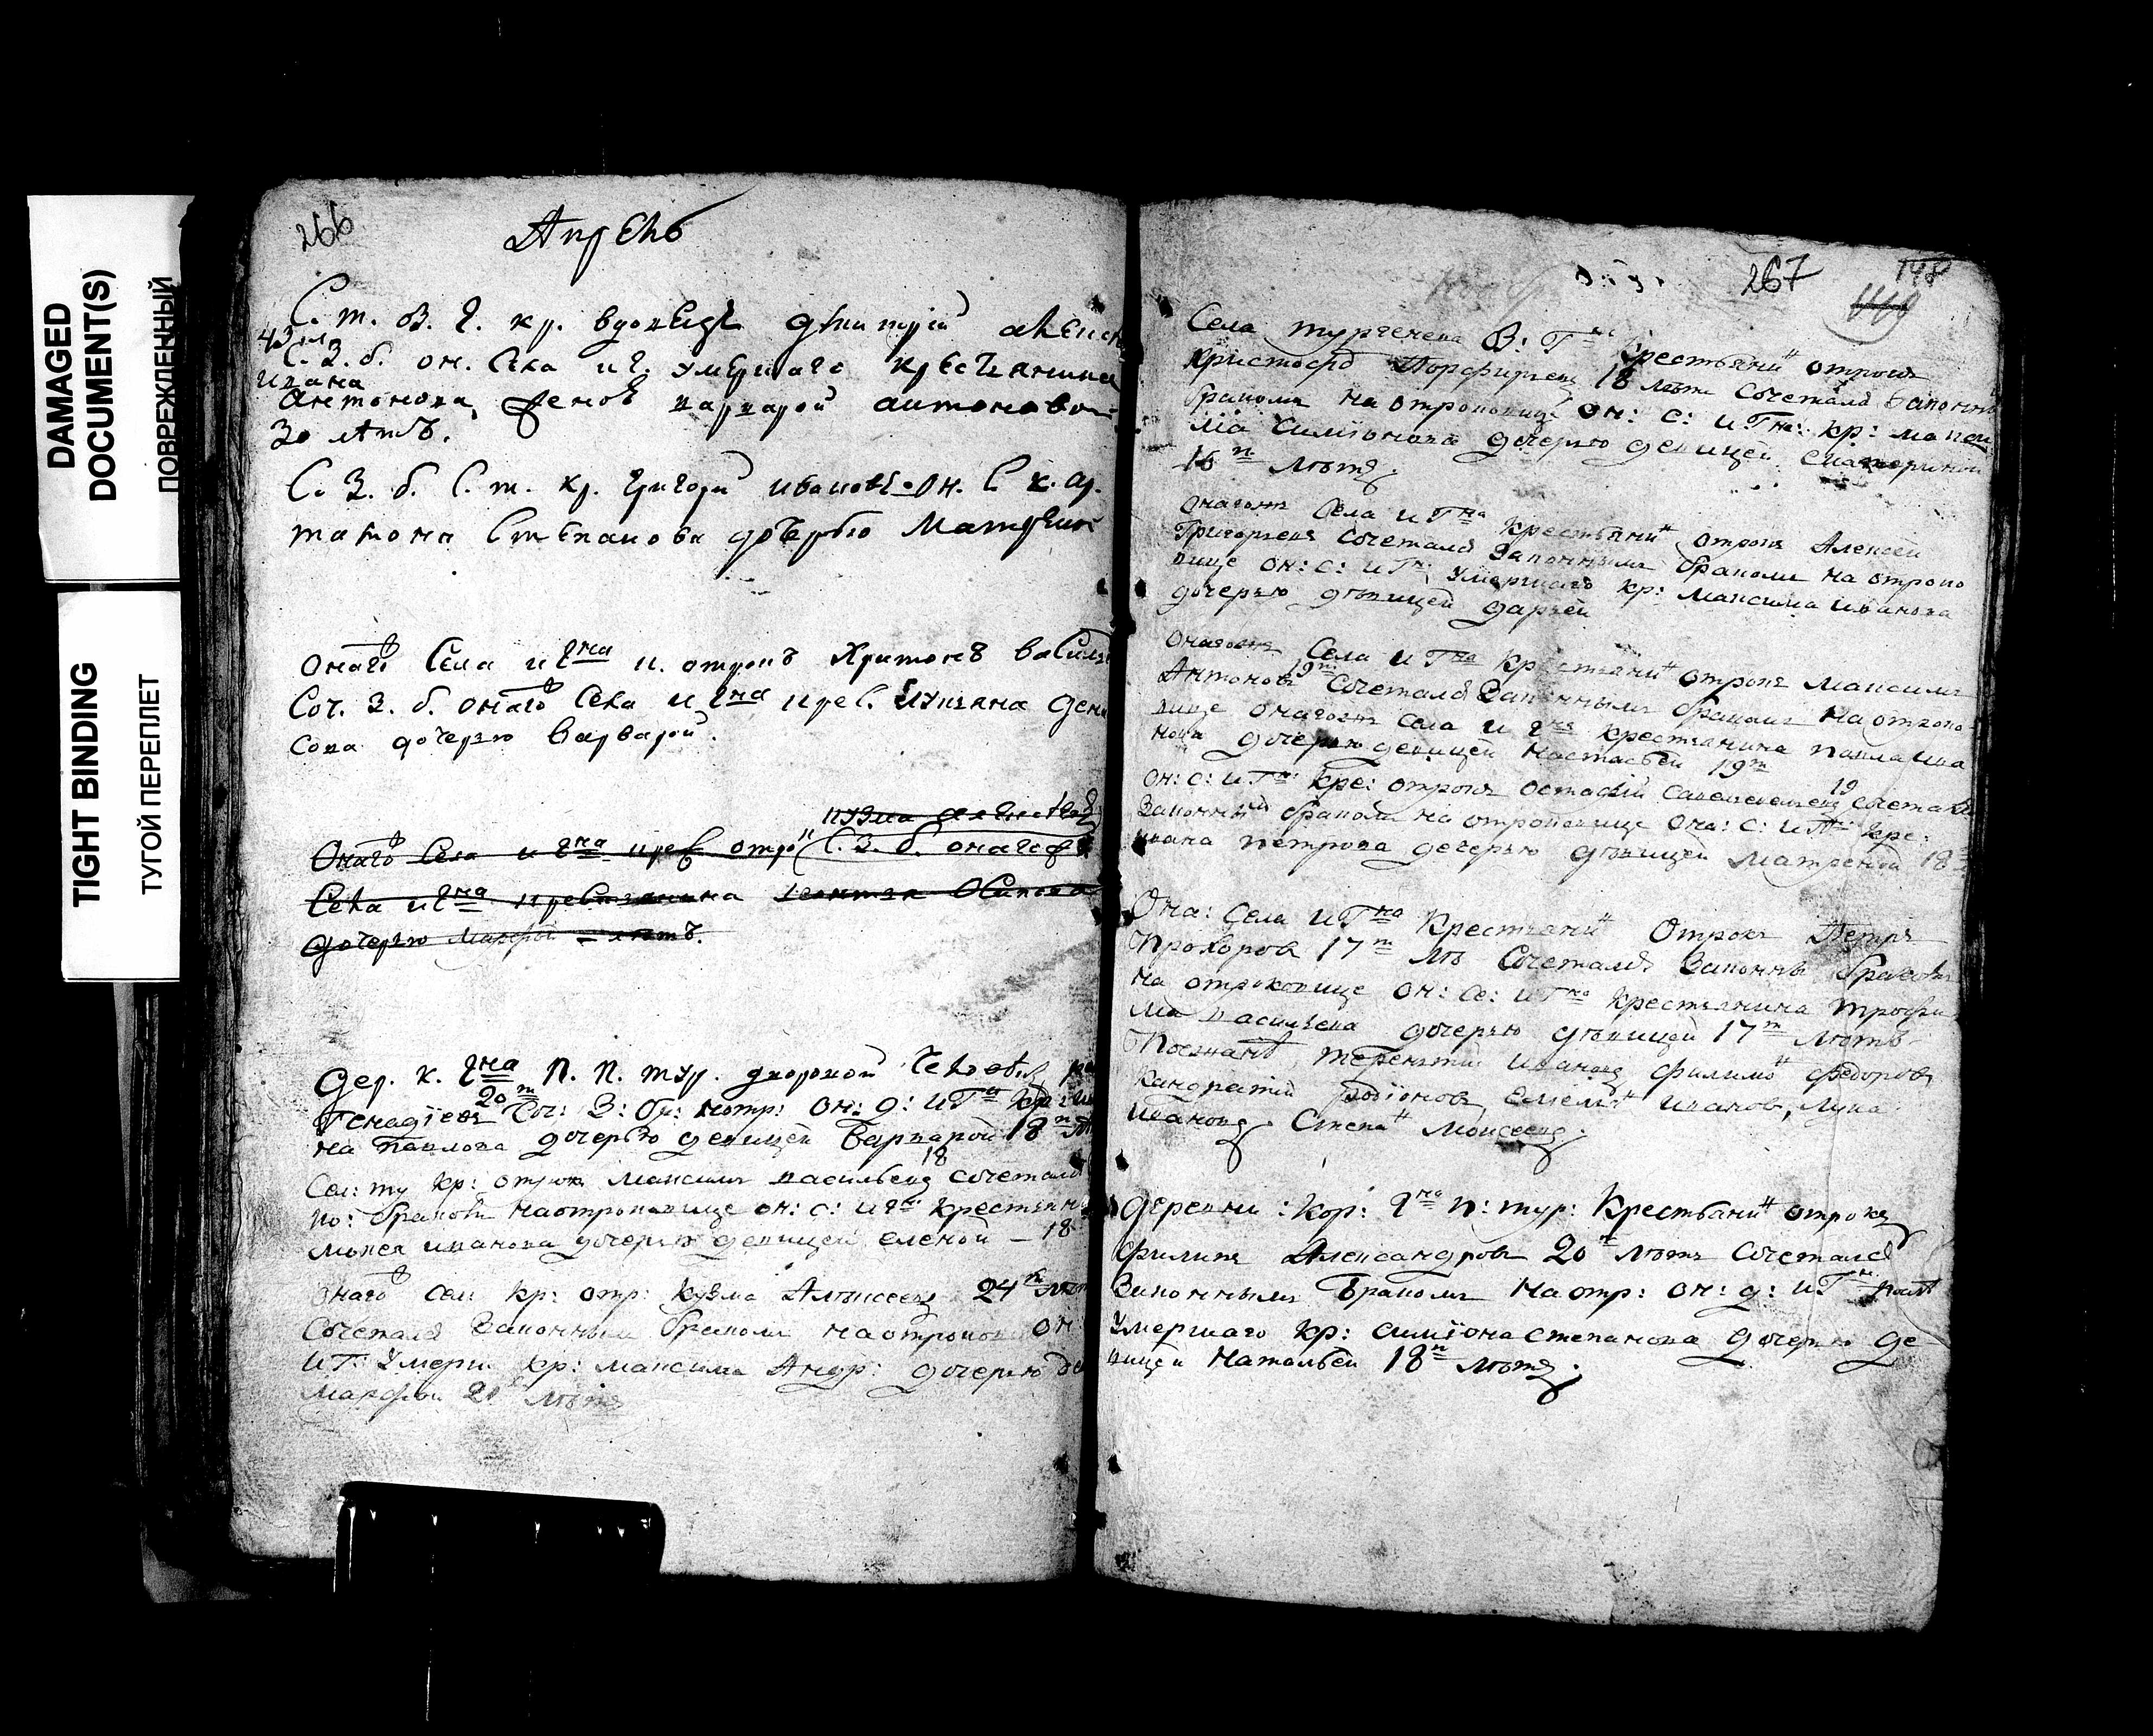 DAMAGED
DOCUMENT(S)
ПОВРЕЖДЕННЫЙ
TIGHT BINDING
ТУГОЙ ПЕРЕПЛЕТ
266
Апрель
С. т. В. г. кр. вдовецъ димитрій
43
С. З. б. он. села и г. умершаго крестьянина
ивана
Антонова женою варварой антоновой
30 летъ.
С. З. б. С. т. кр. григори ивановъ он. С. к.
Степанова дочерью Матреной
Онаго Села и гна к. отрокъ Харитонъ василь
Соч. З. б. онаго села и гна крес. дени
сова дочерью варварой.
кузма
Онаго Села и гна крес отро С. З. б. онагожъ
Села и гна крестьянина Осипова
дочерью Марфой летъ.
Дер. к. гна П. П. тур. дворовой
Генадіевъ 20 т Соч: З: бр: нотр: он: д: и Гна кр:
на Павлова дочерью девицей Варварой 18 т
18
Сел: ту кр: отрокъ Максимъ васильевъ сочетался
бракомъ наотроковице он: с: и гна крестьяни
ивановa дочерью девицей еленой 18
онаго сел: кр: отр: Кузма Алексеевъ 24
Сочетался Законнымъ бракомъ наотроков он
и Г: Умерш кр: максима Андр: дочерью де
марфой 21 летъ
267
148
Села тургенева В: Гна крестьянинъ отрокъ
Христофоръ Порфирьевъ 18 летъ Сочетался Законны
бракомъ на отроковице он: с: и Гна: кр: макси
ма Симіонова дочерью девицей екатериной
16 летъ.
онагожъ Села и Гна крестьянинъ отрокъ Алексей
Григорьевъ сочетался Законнымъ бракомъ на отроко
вице он: с: и Гн: Умершаго кр: максима иванова
дочерью девицей дарьей
онагожъ Села и Гна крестьянинъ отрокъ максимъ
Антоновъ 19 Сочетался Законнымъ бракомъ на отроко
вице онагожъ Села и гна крестьянина павла ива
нова дочерью девицей настасьей 19
он: с: и Гна кре: отрокъ остафій 19 сочетался
Законный бракомъ на отроковице она: с: и Гн: кре:
ивана петрова дочерью девицей матреной 18
Она: Села и Гна Крестьянинъ Отрокъ Петръ
Прохоровъ 17 ле Сочетался Законны бракомъ
на отроковице он: се: и Гна крестьянина трофи
ма васильева дочерью девицей 17 летъ
Поезжанъ, терентий ивановъ филимонъ федоровъ
кандратій родіоновъ, емельянъ ивановъ, Лука
ивановъ Степанъ Моисеевъ.
деревни: Кор: гна п: тур: крестьянинъ отрокъ
филипъ Александровъ 20 летъ сочетался
Законнымъ бракомъ на отр: он: д: и Гна
умершаго кр: симіона степанова дочерью де
вицей натальей 18 летъ.